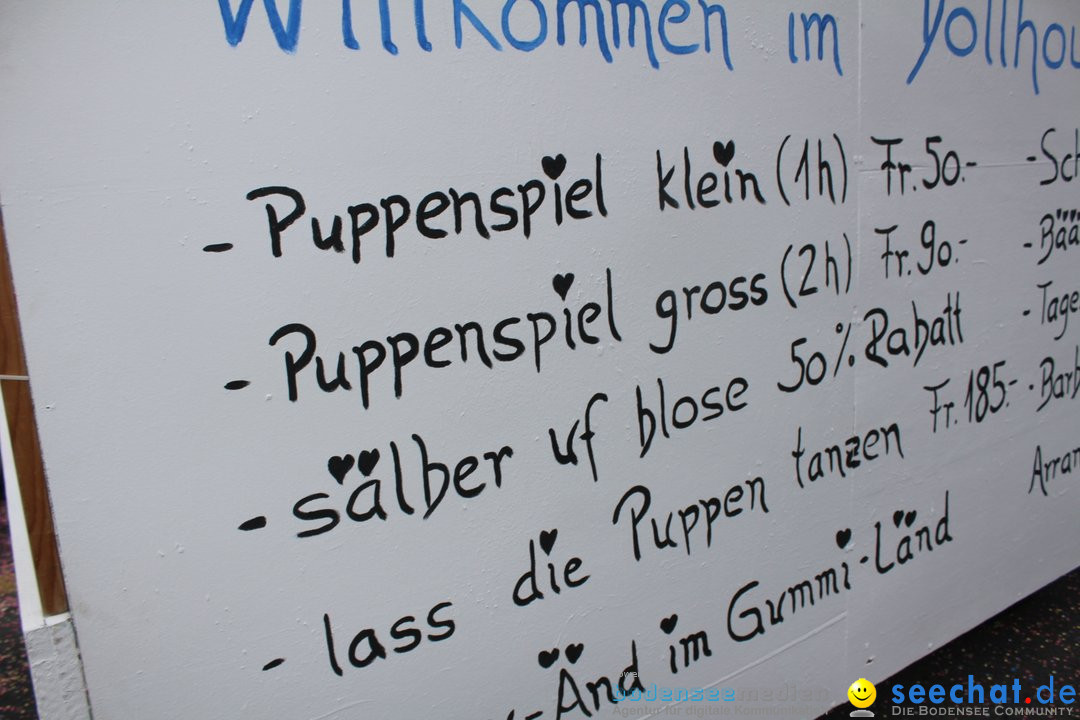 Willkommen im Dollhou
- Puppenspiel klein (1h) Fr. 50.-
- Puppenspiel gross (2h) Fr. 90.-
- sälber uf blose 50% Rabatt
- lass die Puppen tanzen Fr. 185.-
- Änd im Gummi-Länd
- Sch
- Bää
- Tage
- Barb
Arran
bodenseemedien
seechat.de
DIE BODENSEE COMMUNITY